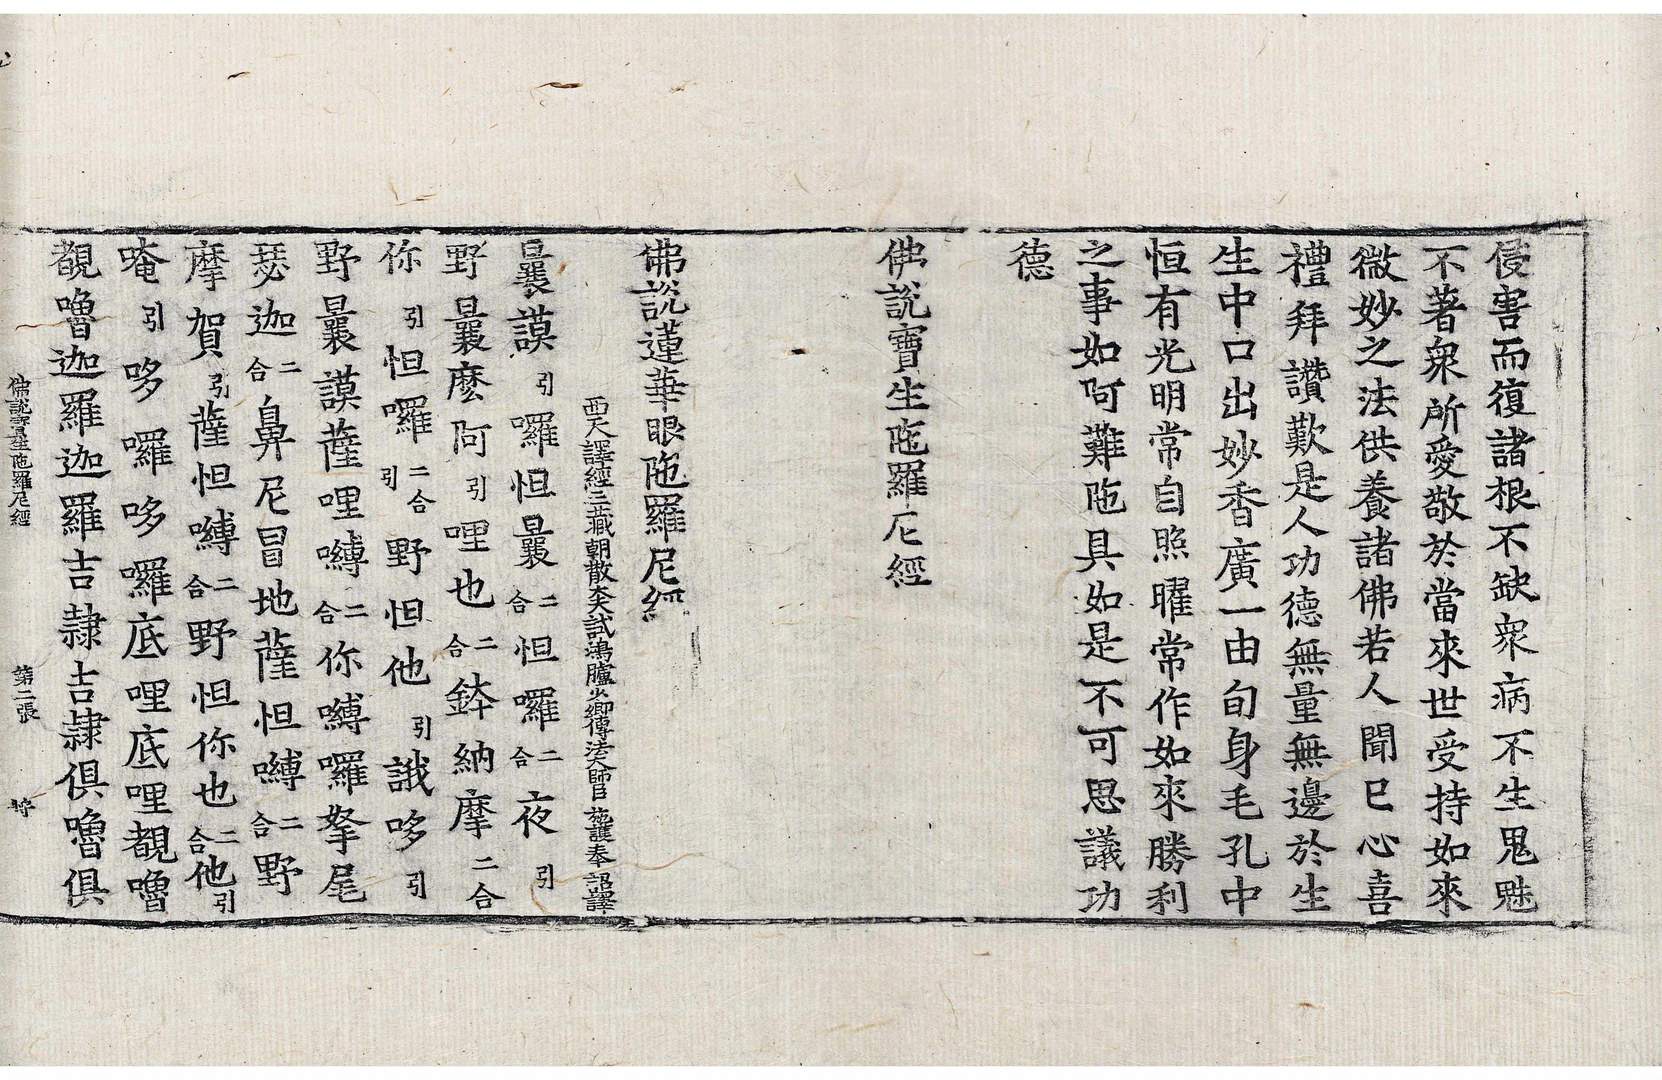 侵害而復諸根不缺衆病不生鬼魅
不著衆所愛敬於當來世受持如來
微妙之法供養諸佛若人聞已心喜
禮拜讚歎是人功德無量無邊於生
生中口出妙香廣一由旬身毛孔中
恒有光明常自照曜常作如來勝利
之事如阿難陁具如是不可思議功
德
佛說寶生陁羅尼經
佛說蓮華眼陁羅尼經
西天譯經三藏朝散大夫試鴻臚少卿傳法大師臣施護奉詔譯
曩謨引囉怛曩二合怛囉二合夜引
野曩麽阿引哩也二合鉢納摩二合
你引怛囉二合引野怛他引誐哆引
野曩謨薩哩嚩二合你嚩囉拏尾
瑟迦二合鼻尼冒地薩怛嚩二合野
摩賀引薩怛嚩二合野怛你也二合他引
唵引哆囉哆囉底哩底哩覩嚕
覩嚕迦羅迦羅吉隷吉隷俱嚕俱
佛說寶生陁羅尼經 第二張